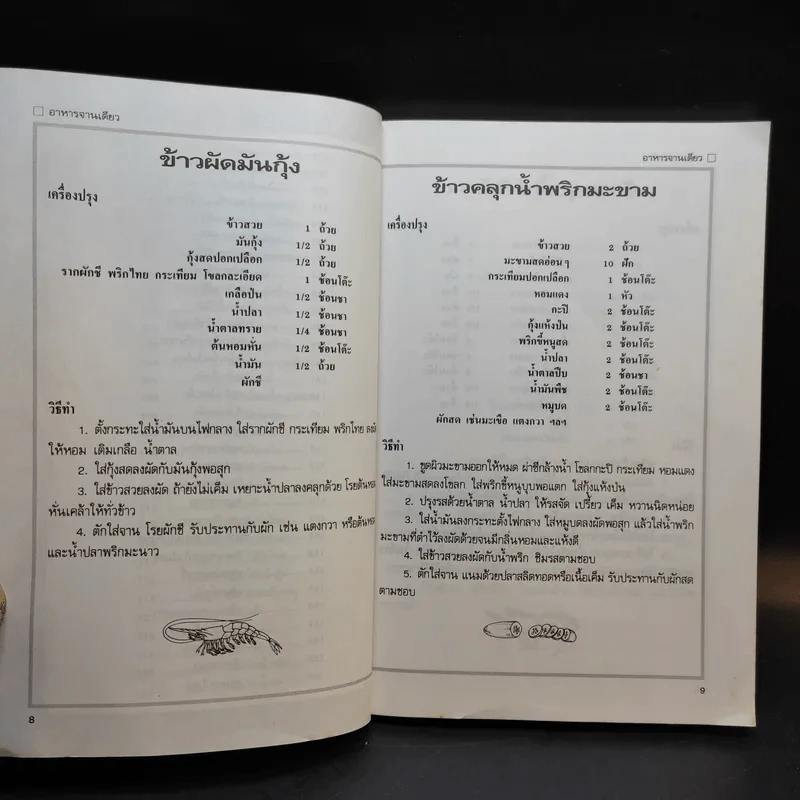 อาหารจานเดียว
ข้าวผัดมันกุ้ง
เครื่องปรุง
ข้าวสวย 1 ถ้วย
มันกุ้ง 1/2 ถ้วย
กุ้งสดปอกเปลือก 1/2 ถ้วย
รากผักชี พริกไทย กระเทียม โขลกละเอียด 1 ช้อนโต๊ะ
เกลือป่น 1/2 ช้อนชา
น้ำปลา 1/2 ช้อนชา
น้ำตาลทราย 1/4 ช้อนชา
ต้นหอมหั่น 1/2 ช้อนโต๊ะ
น้ำมัน 1/2 ถ้วย
ผักชี
วิธีทำ
1. ตั้งกระทะใส่น้ำมันบนไฟกลาง ใส่รากผักชี กระเทียม พริกไทย
ให้หอม เติมเกลือ น้ำตาล
2. ใส่กุ้งสดลงผัดกับมันกุ้งพอสุก
3. ใส่ข้าวสวยลงผัด ถ้ายังไม่เค็ม เหยาะน้ำปลาลงคลุกด้วย โรยต้นหอม
หั่นเคล้าให้ทั่วข้าว
4. ตักใส่จาน โรยผักชี รับประทานกับผัก เช่น แตงกวา หรือต้นหอม
และน้ำปลาพริกมะนาว
8
อาหารจานเดียว
ข้าวคลุกน้ำพริกมะขาม
เครื่องปรุง
ข้าวสวย 2 ถ้วย
มะขามสดอ่อนๆ 10 ฝัก
กระเทียมปอกเปลือก 1 ช้อนโต๊ะ
หอมแดง 1 หัว
กะปิ 2 ช้อนโต๊ะ
กุ้งแห้งป่น 2 ช้อนโต๊ะ
พริกขี้หนูสด 2 ช้อนโต๊ะ
น้ำปลา 2 ช้อนโต๊ะ
น้ำตาลปีบ 2 ช้อนชา
น้ำมันพืช 2 ช้อนโต๊ะ
หมูบด 2 ช้อนโต๊ะ
ผักสด เช่นมะเขือ แตงกวา ฯลฯ
วิธีทำ
1. ขูดผิวมะขามออกให้หมด ผ่าซีกล้างน้ำ โขลกกะปิ กระเทียม หอมแดง
ใส่มะขามสดลงโขลก ใส่พริกขี้หนูบุบพอแตก ใส่กุ้งแห้งป่น
2. ปรุงรสด้วยน้ำตาล น้ำปลา ให้รสจัด เปรี้ยว เค็ม หวานนิดหน่อย
3. ใส่น้ำมันลงกระทะตั้งไฟกลาง ใส่หมูบดลงผัดพอสุก แล้วใส่น้ำพริก
มะขามที่ตำไว้ลงผัดด้วยจนมีกลิ่นหอมและแห้งดี
4. ใส่ข้าวสวยลงผัดกับน้ำพริก ชิมรสตามชอบ
5. ตักใส่จาน แนมด้วยปลาสลิดทอดหรือเนื้อเค็ม รับประทานกับผักสด
ตามชอบ
9